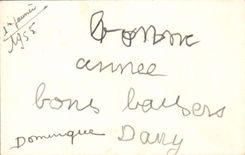 1er janvier
1955
bonne
annee
bons baisers
Dominique Dany